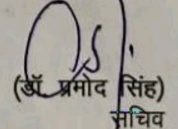 (डॉ प्रमोद सिंह)
सचिव